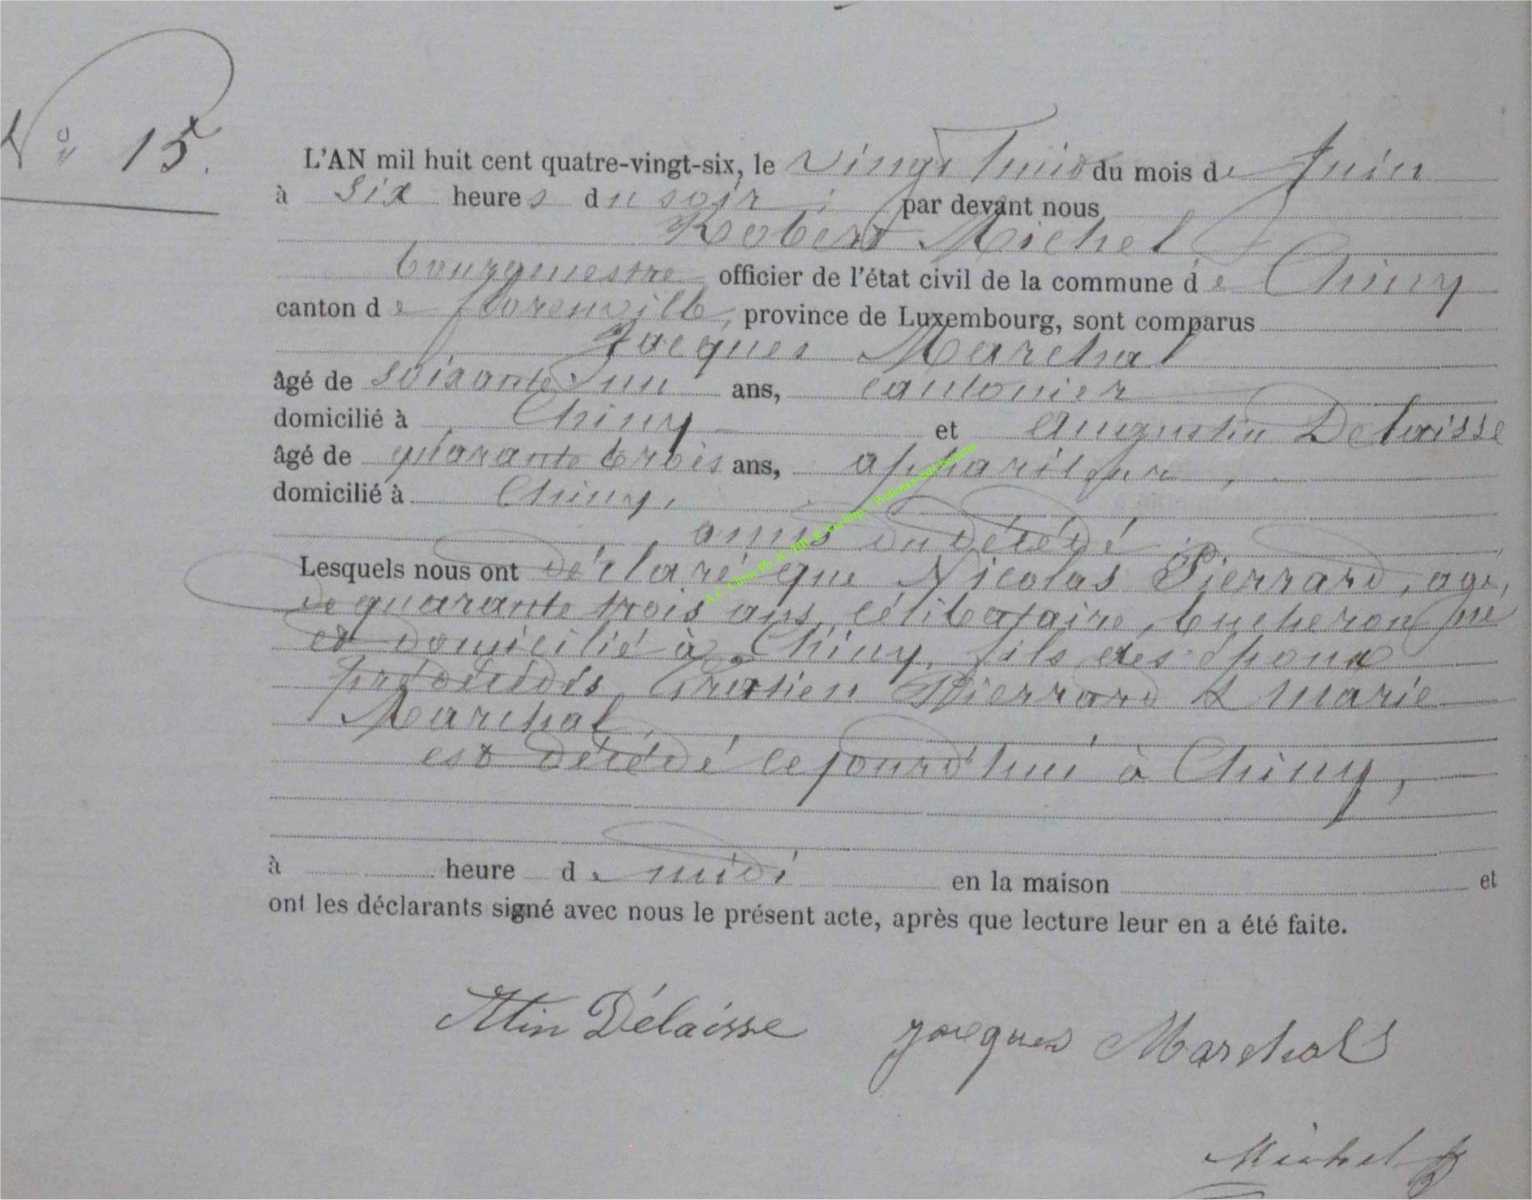 N° 15.
L'AN mil huit cent quatre-vingt-six, le vingt huit du mois de Juin
à six heures du soir, par devant nous
Robert Michel
bourgmestre officier de l'état civil de la commune de Chiny
canton de florenville, province de Luxembourg, sont comparus
Jacques Marchal
âgé de soixante un ans, cantonier
domicilié à Chiny et Augustin Delaisse
âgé de quarante trois ans, appariteur,
domicilié à Chiny,
amis du décédé
Lesquels nous ont déclaré que Nicolas Pierrard, agé,
de quarante trois ans, célibataire, bucheron, né
et domicilié à Chiny, fils des époux
prédécédés, Pierrard & marie
Marchal,
est décédé cejourd'hui à Chiny,
à heure de midi en la maison et
ont les déclarants signé avec nous le présent acte, après que lecture leur en a été faite.
Atin Délaisse Jacques Marchal
Michel